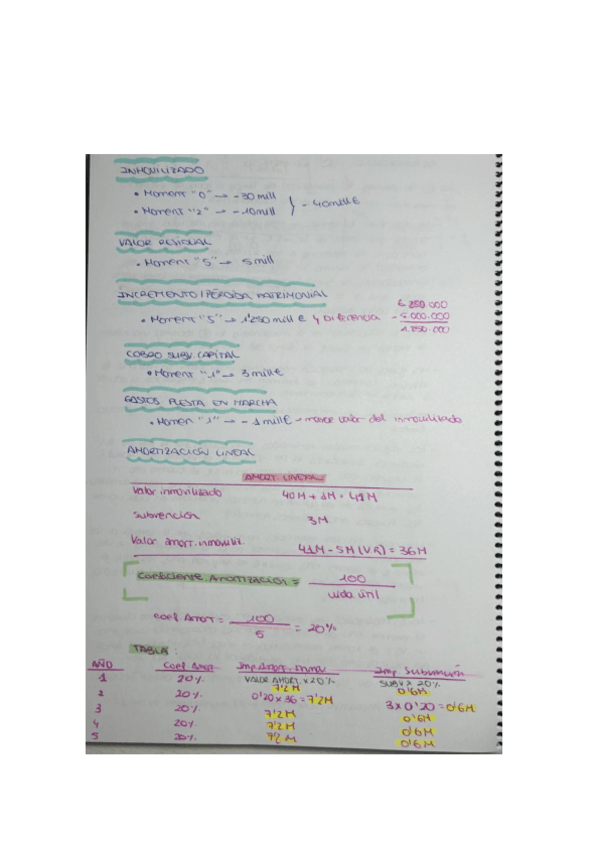 INMOVILIZADO
• Moment "0" → -30 mill
• Moment "2" → -10 mill } - 40 mill €
VALOR RESIDUAL
• Moment "5" → 5 mill
INCREMENTO / PÉRDIDA PATRIMONIAL
• Moment "5" → 1'250 mill € y Diferencia
6.250.000
- 5.000.000
1.250.000
COBRO SUBV. CAPITAL
• Moment "1" → 3 mill €
GASTOS PUESTA EN MARCHA
• Momen "1" → - 1 mill € → mayor valor del inmovilizado
AMORTIZACIÓN LINEAL
AMORT LINEAL
Valor inmovilizado 40 M + 1M = 41 M
Subvención 3 M
Valor amort. inmoviliz. 41M - 5M (V.R) = 36M
COEFICIENTE. AMORTIZACIÓN = 100 / vida útil
Coef Amort = 100 / 5 = 20%
TABLA:
AÑO Coef. Amort Imp. Amort. Inmov Imp. Subvención
VALOR AMORT. x 20% SUBV x 20%
1 20% 7'2 M 0'6M
2 20% 0'20 x 36 = 7'2M 3 x 0'20 = 0'6M
3 20% 7'2 M 0'6M
4 20% 7'2 M 0'6M
5 20% 7'2 M 0'6M